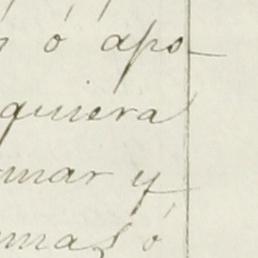 ó apo-
quiera
mar y
mas ó